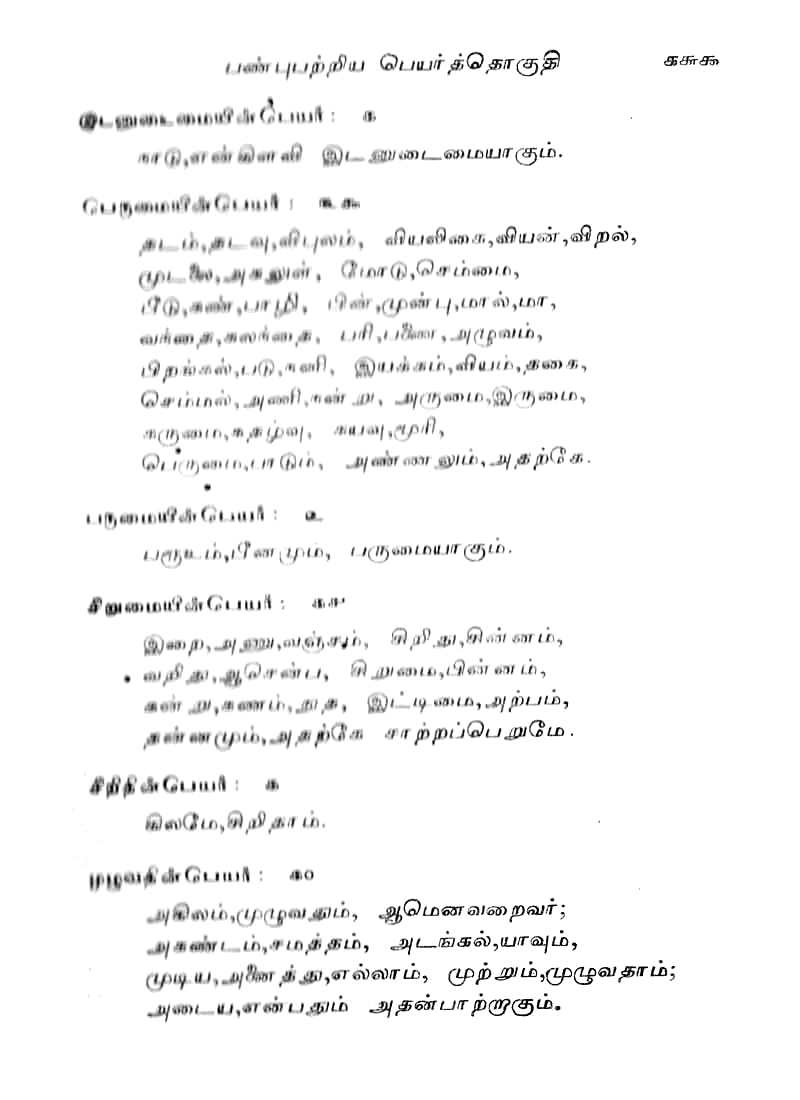 பண்புபற்றிய பெயர்த்தொகுதி ௧௬௯
இடனுடைமையின்பேயர்: ௧
இடனுடைமையாகும்.
பெருமையின்பெயர்: ௩௯
தடம்,தடவு,விபுலம், வியலிகை,வியன்,விறல்,
முடலை,அகலுள், மோடு,செம்மை,
பீடு,கண்,பாழி, பிண்,முண்பு,மால்,மா,
பரி,பணை,அழுவம்,
பிறங்கல்,படு,நனி, இயக்கம்,வியம்,தகை,
செம்மல்,அணி,நன்று, அருமை,இருமை,
கருமை,ககழ்வு, கயவு,மூரி,
பெருமை,பாடும், அண்ணலும்,அதற்கே.
பருமையின்பெயர்: ௨
பரூஉம்,பீனமும், பருமையாகும்.
சிறுமையின்பெயர்: ௧௪
இறை,அணு,வஞ்சமும், சிறிது,சின்னம்,
வறிது,ஆசென்ப, சிறுமை,பின்னம்,
கன்று,கணம்,நுக, இட்டிமை,அற்பம்,
தன்னமும்,அதற்கே சாற்றப்பெறுமே.
சிறிதின்பெயர்: ௧
கிலமே,சிறிதாம்.
முழுவதின்பெயர்: ௧௦
அகிலம்,முழுவதும், ஆமெனவறைவர்;
அகண்டம்,சமத்தம், அடங்கல்,யாவும்,
முடிய,அனைத்து,எல்லாம், முற்றும்,முழுவதாம்;
அடைய,என்பதும் அதன்பாற்றாகும்.